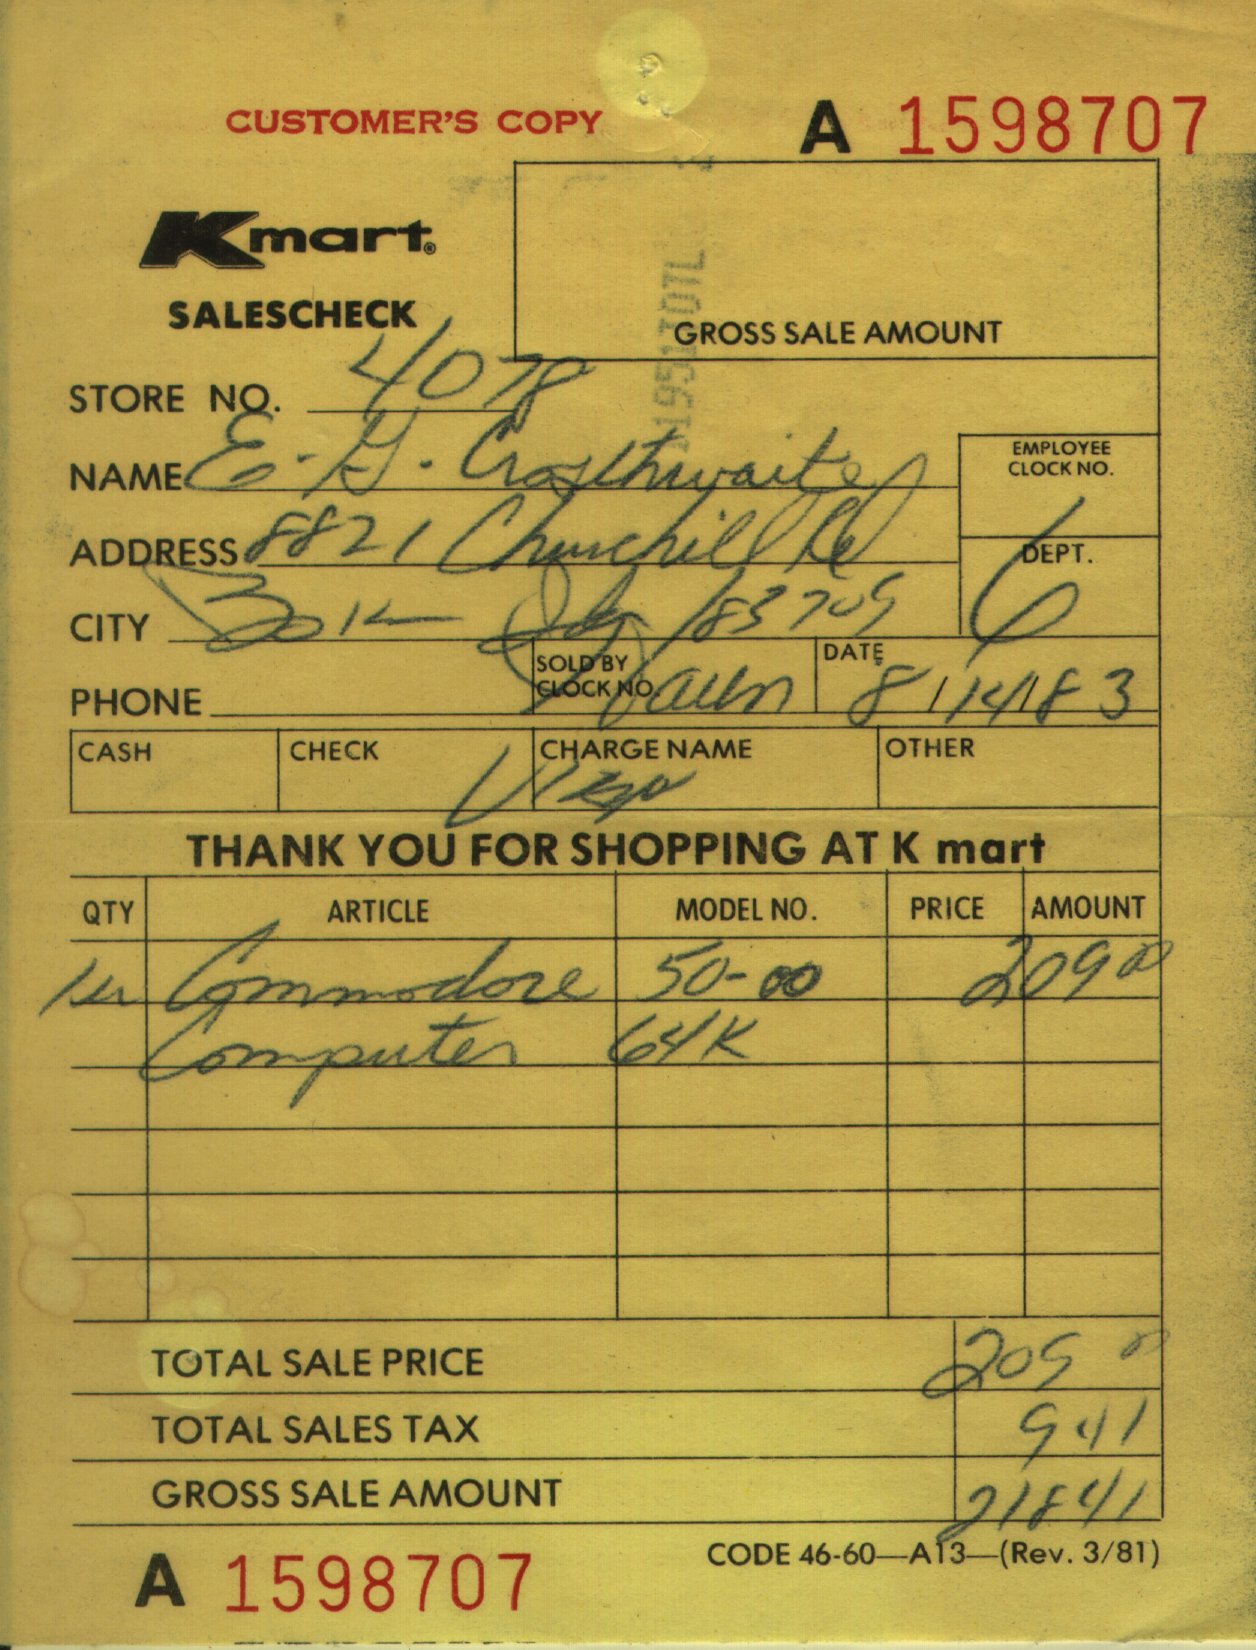 CUSTOMER'S COPY A 1598707
Kmart®
SALESCHECK
GROSS SALE AMOUNT
STORE NO. 4078
NAME E. G. Crosthwaite
EMPLOYEE CLOCK NO.
ADDRESS 8821 Churchill Rd
DEPT. 6
CITY 83709
PHONE
SOLD BY CLOCK NO.
DATE 8/14/83
CASH CHECK CHARGE NAME Visa OTHER
THANK YOU FOR SHOPPING AT K mart
QTY ARTICLE MODEL NO. PRICE AMOUNT
Commodore 50-00 209 00
Computer 64K
TOTAL SALE PRICE 209 00
TOTAL SALES TAX 9 41
GROSS SALE AMOUNT 218 41
A 1598707 CODE 46-60—A13—(Rev. 3/81)